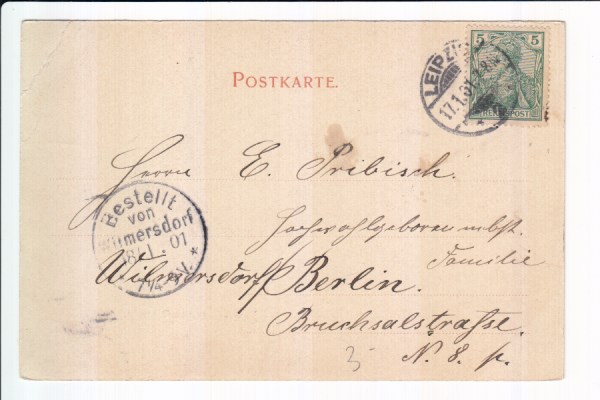 POSTKARTE.
5 5
REICHSPOST
LEIPZIG
17.1.01
Herrn E. Pribisch.
Hochwohlgeboren nebst.
Familie
Wilmersdorf/Berlin.
Bruchsalstraße.
N. 8. p.
Bestellt
von
Wilmersdorf
18.1.01